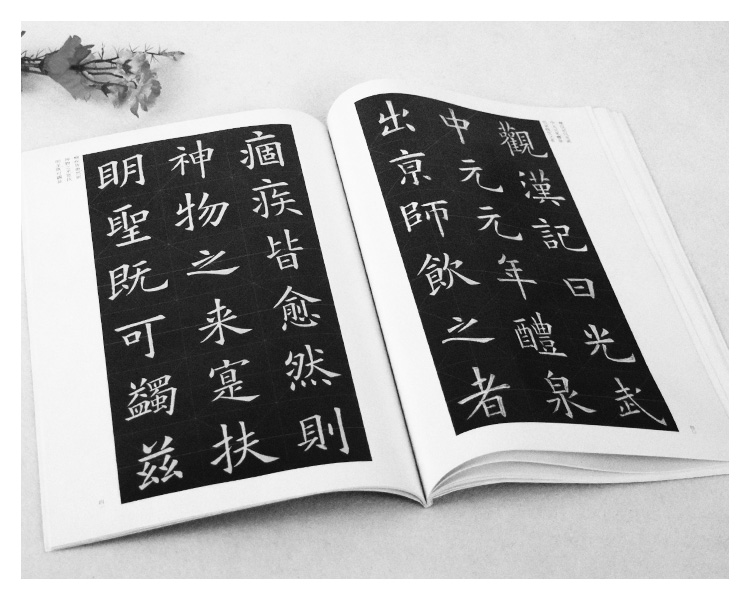 觀漢記曰光武
中元元年醴泉
出京師飲之者
痼疾皆愈然則
神物之来寔扶
明聖既可蠲茲